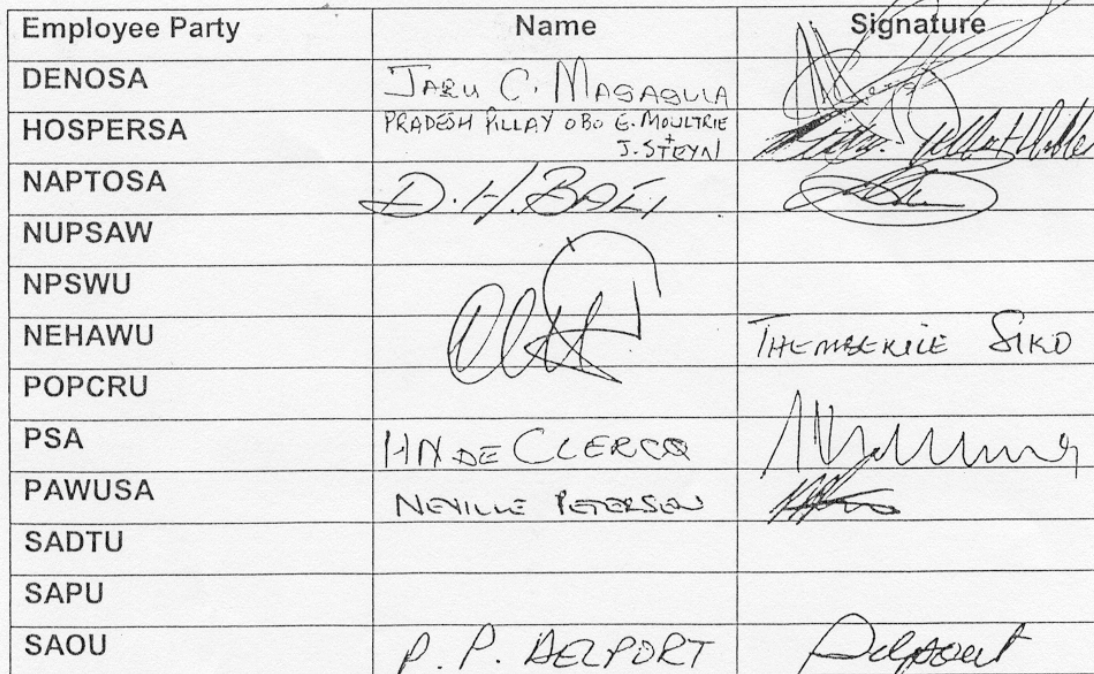 Employee Party Name Signature
DENOSA C. MAGAGULA
HOSPERSA PRADESH PILLAY OBO E. MOULTRIE
+
J. STEYN
NAPTOSA D.H.
NUPSAW
NPSWU
NEHAWU SIKO
POPCRU
PSA HN DE CLERCQ
PAWUSA NEVILLE PETERSEN
SADTU
SAPU
SAOU P. P. DELPORT Delport